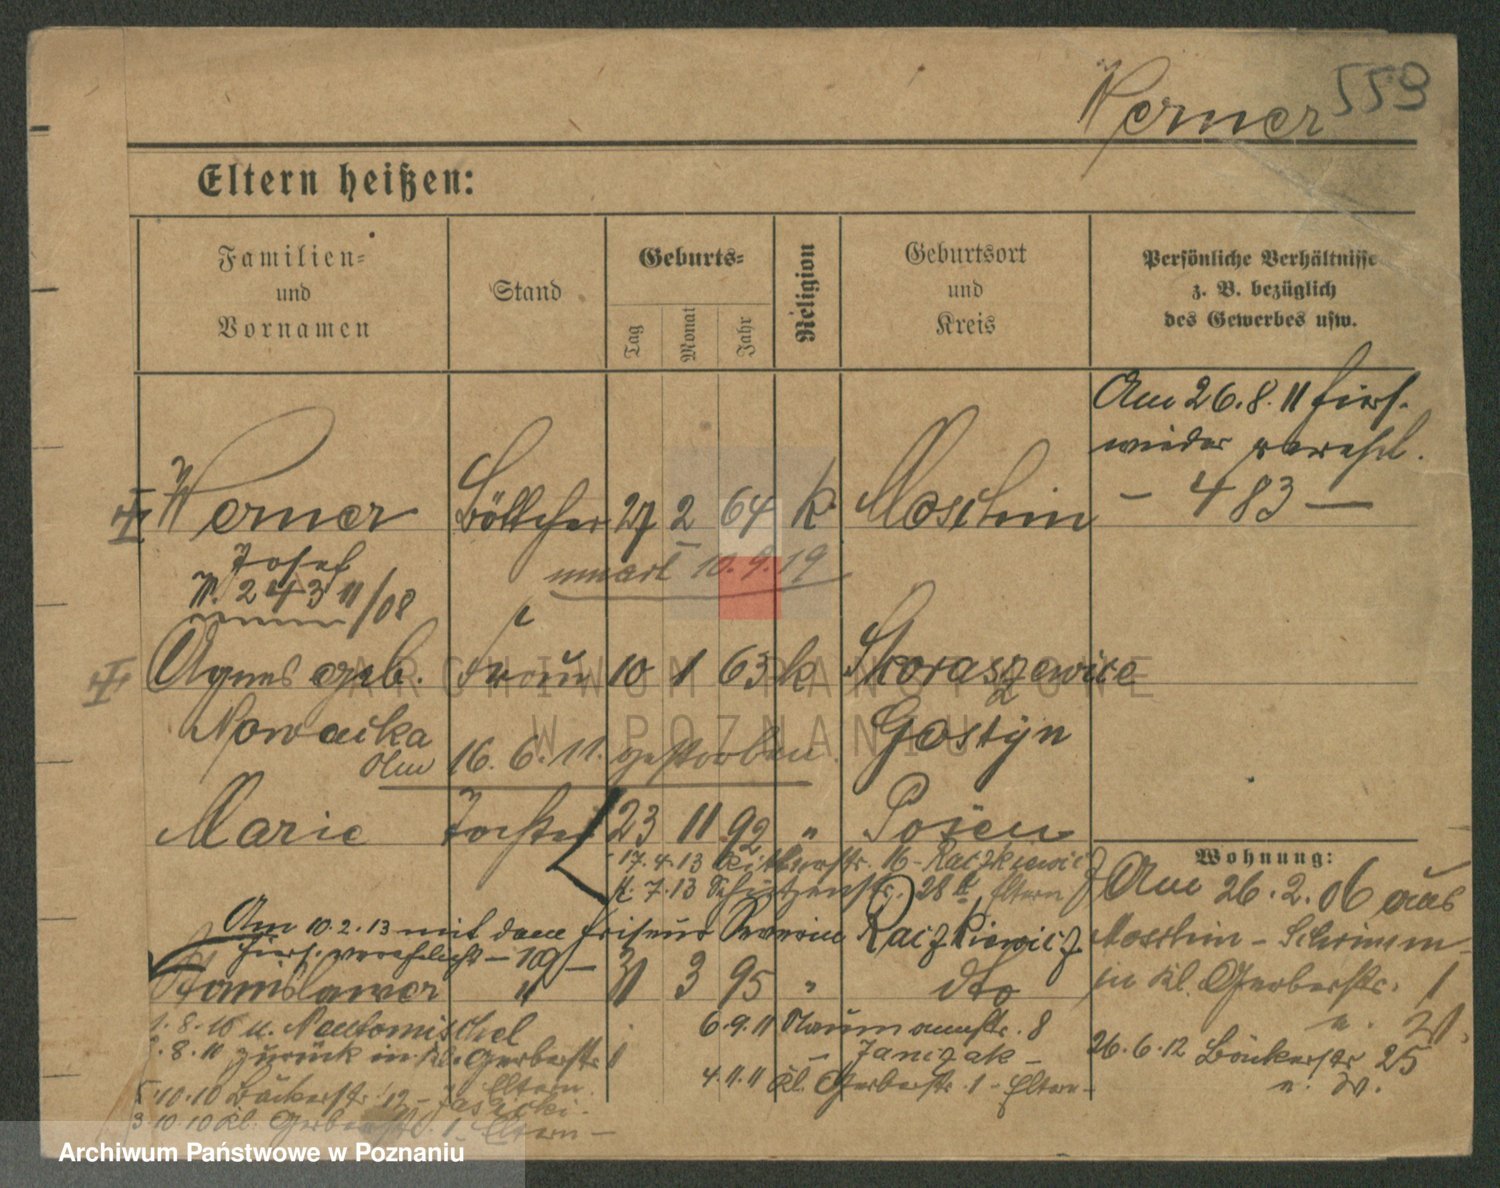 Werner 559
Eltern heißen:
Familien-
und
Vornamen
Stand
Geburts-
Tag
Monat
Jahr
Religion
Geburtsort
und
Kreis
Persönliche Verhältnisse
z. B. bezüglich
des Gewerbes usw.
Am 26.8.11 hiers.
wieder verehel.
- 483 -
Werner Böttcher 27 2 64 k Moschin
Josef
W. 243 11/08
10.9.19
Agnes geb. Frau 10 1 63 k Skoraszewice
Nowacka Gostyn
Am 16.6.11. gestorben.
Marie Tochter 23 11 92 " Posen
17.4.13 16 - Raczkiewicz
7.13 Schützenstr. 28 Eltern
Am 10.2.13 mit dem Friseur Severin Raczkiewicz
hiers. verehelicht - 109 -
Stanislawa " 31 3 95 " dto
Wohnung:
Am 26.2.06 aus
Moschin - Schrimm
in Kl. Gerberstr. 1
26.6.12 Bäckerstr 25
1.8.10 n. Neutomischel
8.11 zurück in Kl. Gerberstr 1
6.9.11 Naumannstr. 8
- Janiczak -
4.11.11 Kl. Gerberstr. 1 - Eltern -
5.10.10 Bäckerstr. 12 -
Eltern
3.10.10 Kl. Gerberstr. 1 - Eltern -
ARCHIWUM PAŃSTWOWE
W POZNANIU
Archiwum Państwowe w Poznaniu